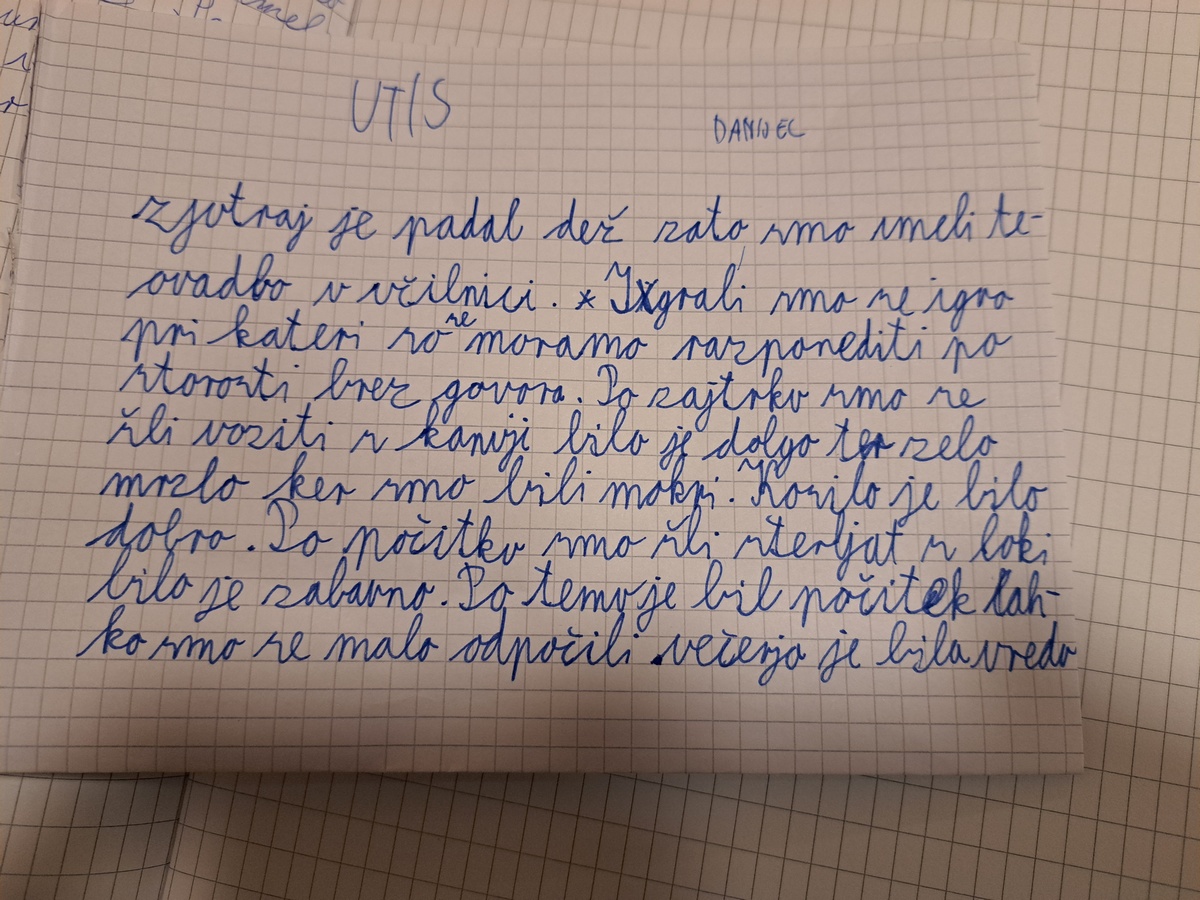 UTIS
DANIJEL
zjutraj je padal dež zato smo imeli te-
ovadbo v učilnici. * Igrali smo se igro
pri kateri so se moramo razporediti po
starosti brez govora. Po zajtrku smo se
šli voziti s kanuji bilo je dolgo ter zelo
mrzlo ker smo bili mokri. Kosilo je bilo
dobro. Po počitku smo šli sterljat z loki
bilo je zabavno. Po temu je bil počitek lah-
ko smo se malo odpočili. večerja je bila vredu